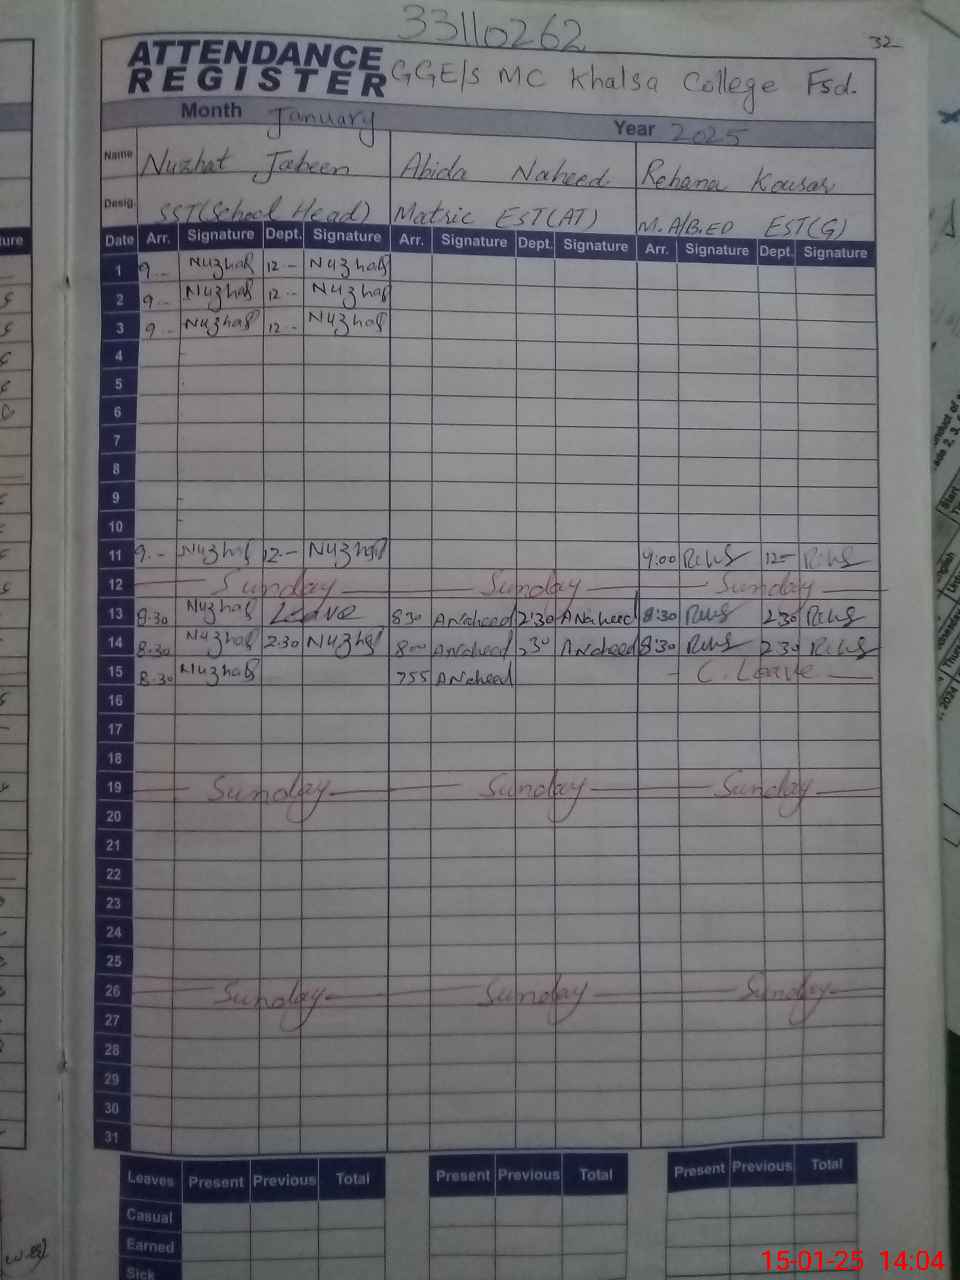 33110262
32
ATTENDANCE
REGISTER GGE/S MC Khalsa College Fsd.
Month January Year 2025
Name Nuzhat Jabeen Abida Naheed Rehana Kousar
Desig. SST(School Head) Matric EST(AT) M.A/B.ED EST(G)
Date Arr. Signature Dept. Signature Arr. Signature Dept. Signature Arr. Signature Dept. Signature
1 9 -- Nuzhat 12 -- Nuzhat
2 9 -- Nuzhat 12 -- Nuzhat
3 9 -- Nuzhat 12 -- Nuzhat
4
5
6
7
8
9
10
11 9.- Nuzhat 12.- Nuzhat 9:00 12-
12 Sunday Sunday Sunday
13 8.30 Nuzhat Leave 830 ANaheed 2:30 ANaheed 8:30 2 30
14 8.30 Nuzhat 2.30 Nuzhat 800 ANaheed 230 ANaheed 8:30 2 30
15 8.30 Nuzhat 755 ANaheed C. Leave
16
17
18
19 Sunday Sunday Sunday
20
21
22
23
24
25
26 Sunday Sunday Sunday
27
28
29
30
31
Leaves Present Previous Total Present Previous Total Present Previous Total
Casual
Earned
Sick
15-01-25 14:04